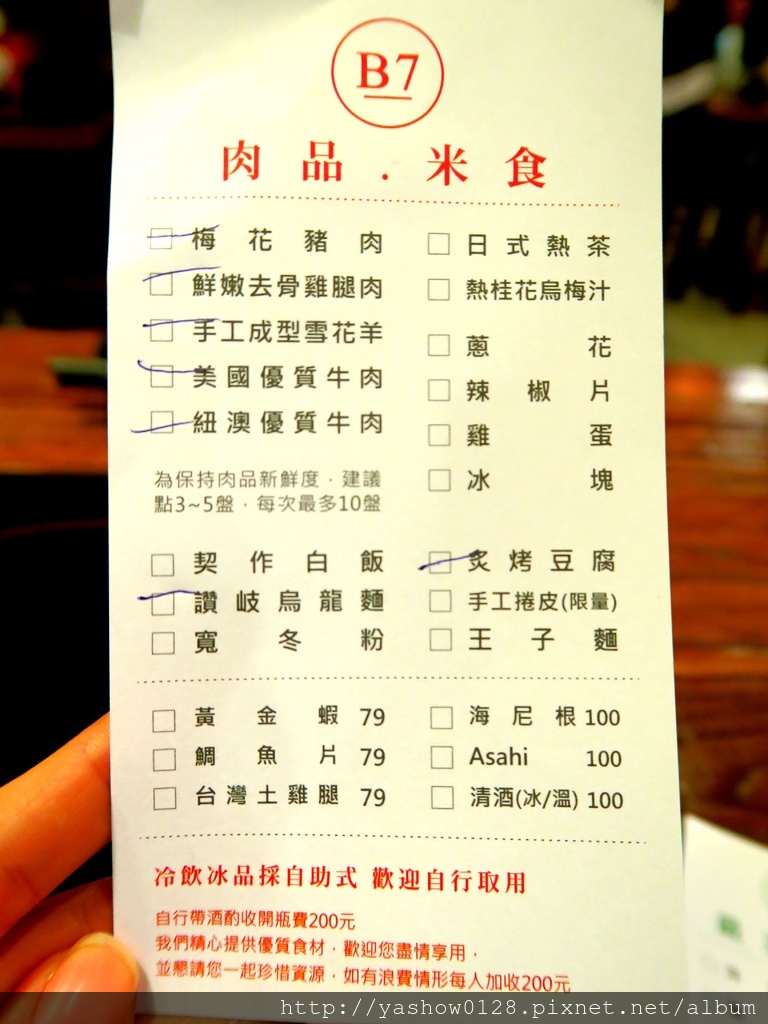 B7
肉品．米食
梅花豬肉
鮮嫩去骨雞腿肉
手工成型雪花羊
美國優質牛肉
紐澳優質牛肉
為保持肉品新鮮度，建議
點3~5盤，每次最多10盤
日式熱茶
熱桂花烏梅汁
蔥花
辣椒片
雞蛋
冰塊
契作白飯
讚岐烏龍麵
寬冬粉
炙烤豆腐
手工捲皮(限量)
王子麵
黃金蝦 79
鯛魚片 79
台灣土雞腿 79
海尼根 100
Asahi 100
清酒(冰/溫) 100
冷飲冰品採自助式 歡迎自行取用
自行帶酒酌收開瓶費200元
我們精心提供優質食材，歡迎您盡情享用，
並懇請您一起珍惜資源，如有浪費情形每人加收200元
http://yashow0128.pixnet.net/album